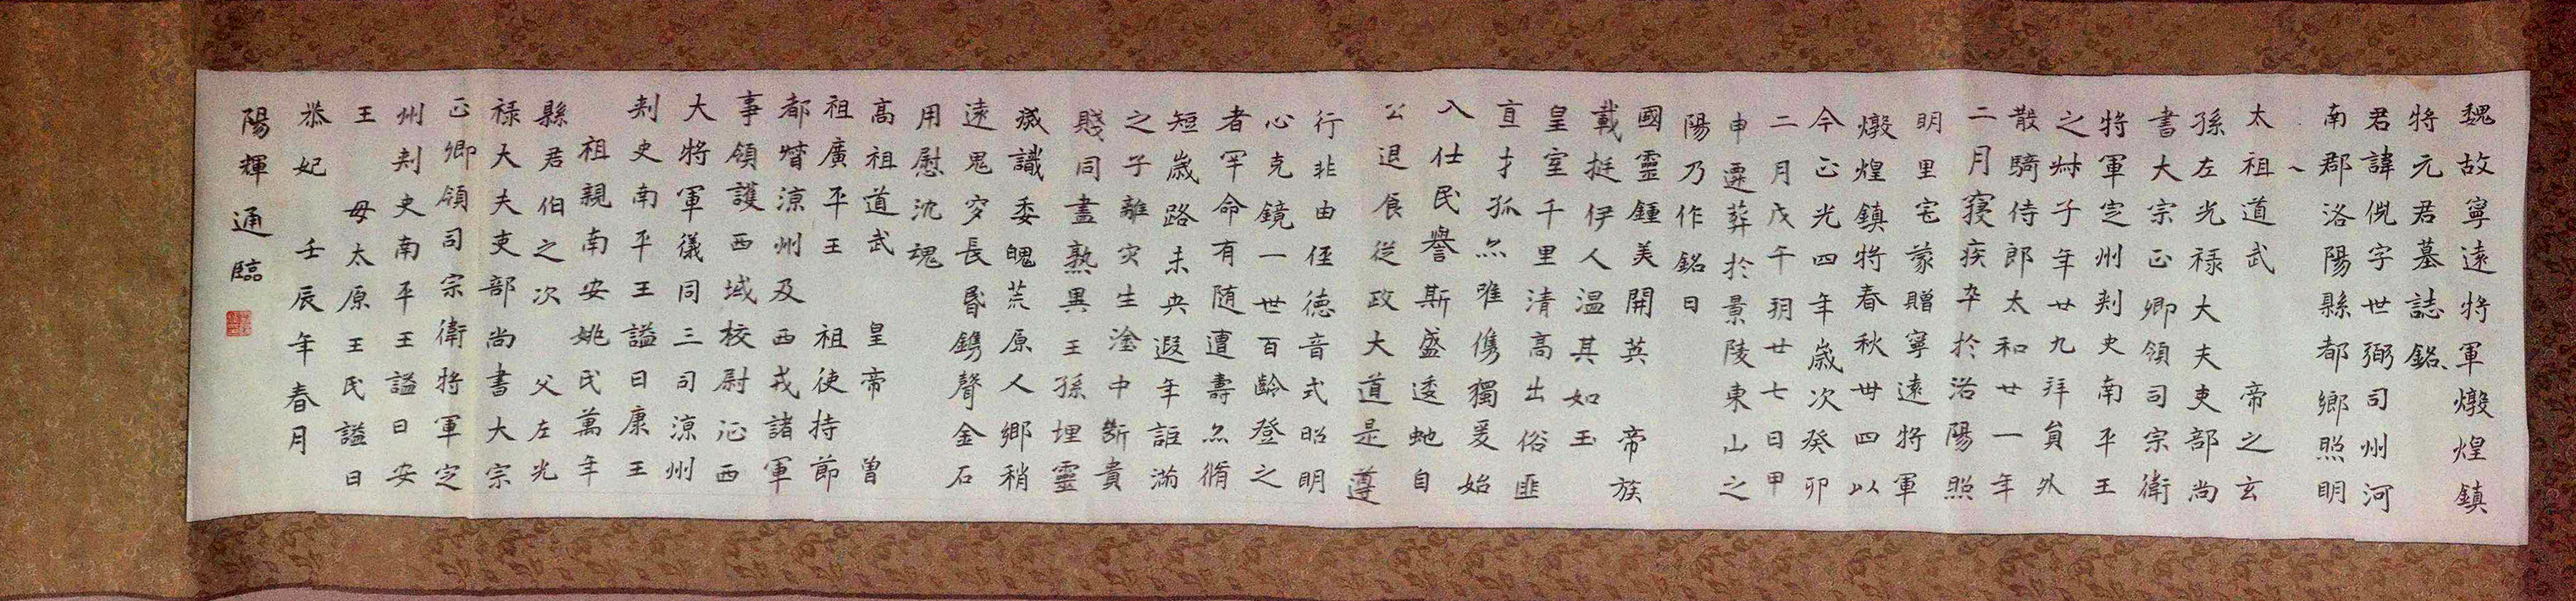 魏故寧遠將軍燉煌鎮
將元君墓誌銘
君諱倪字世弼司州河
南郡洛陽縣都鄉照明
太祖道武　帝之玄
孫左光祿大夫吏部尚
書大宗正卿領司宗衛
將軍定州刾史南平王
之叔子年廿九拜貟外
散騎侍郎太和廿一年
二月寑疾卒於洛陽照
明里宅蒙贈寧遠將軍
燉煌鎮將春秋丗四以
今正光四年歲次癸卯
二月戊午朔廿七日甲
申遷葬於景陵東山之
陽乃作銘曰
國靈鍾美開英　帝族
載挺伊人温其如玉
皇室千里清高出俗匪
直才孤亦唯儁獨爰始
入仕民譽斯盛逶虵自
公退食從政大道是遵
行非由俓德音式昭明
心克鏡一世百齡登之
者罕命有随遭壽亦脩
短歲路未央遐年詎滿
之子離灾生淦中斷貴
賤同盡熟異王孫埋靈
藏識委魄荒原人鄉稍
遠鬼穸長昏鐫聲金石
用慰沈魂
高祖道武　皇帝　曽
祖廣平王　祖使持節
都督涼州及西戎諸軍
事領護西域校尉征西
大將軍儀同三司涼州
刾史南平王謚曰康王
祖親南安姚氏萬年
縣君伯之次　父左光
祿大夫吏部尚書大宗
正卿領司宗衛將軍定
州刾史南平王謚曰安
王　母太原王氏謚曰
恭妃　壬辰年春月
陽輝通臨